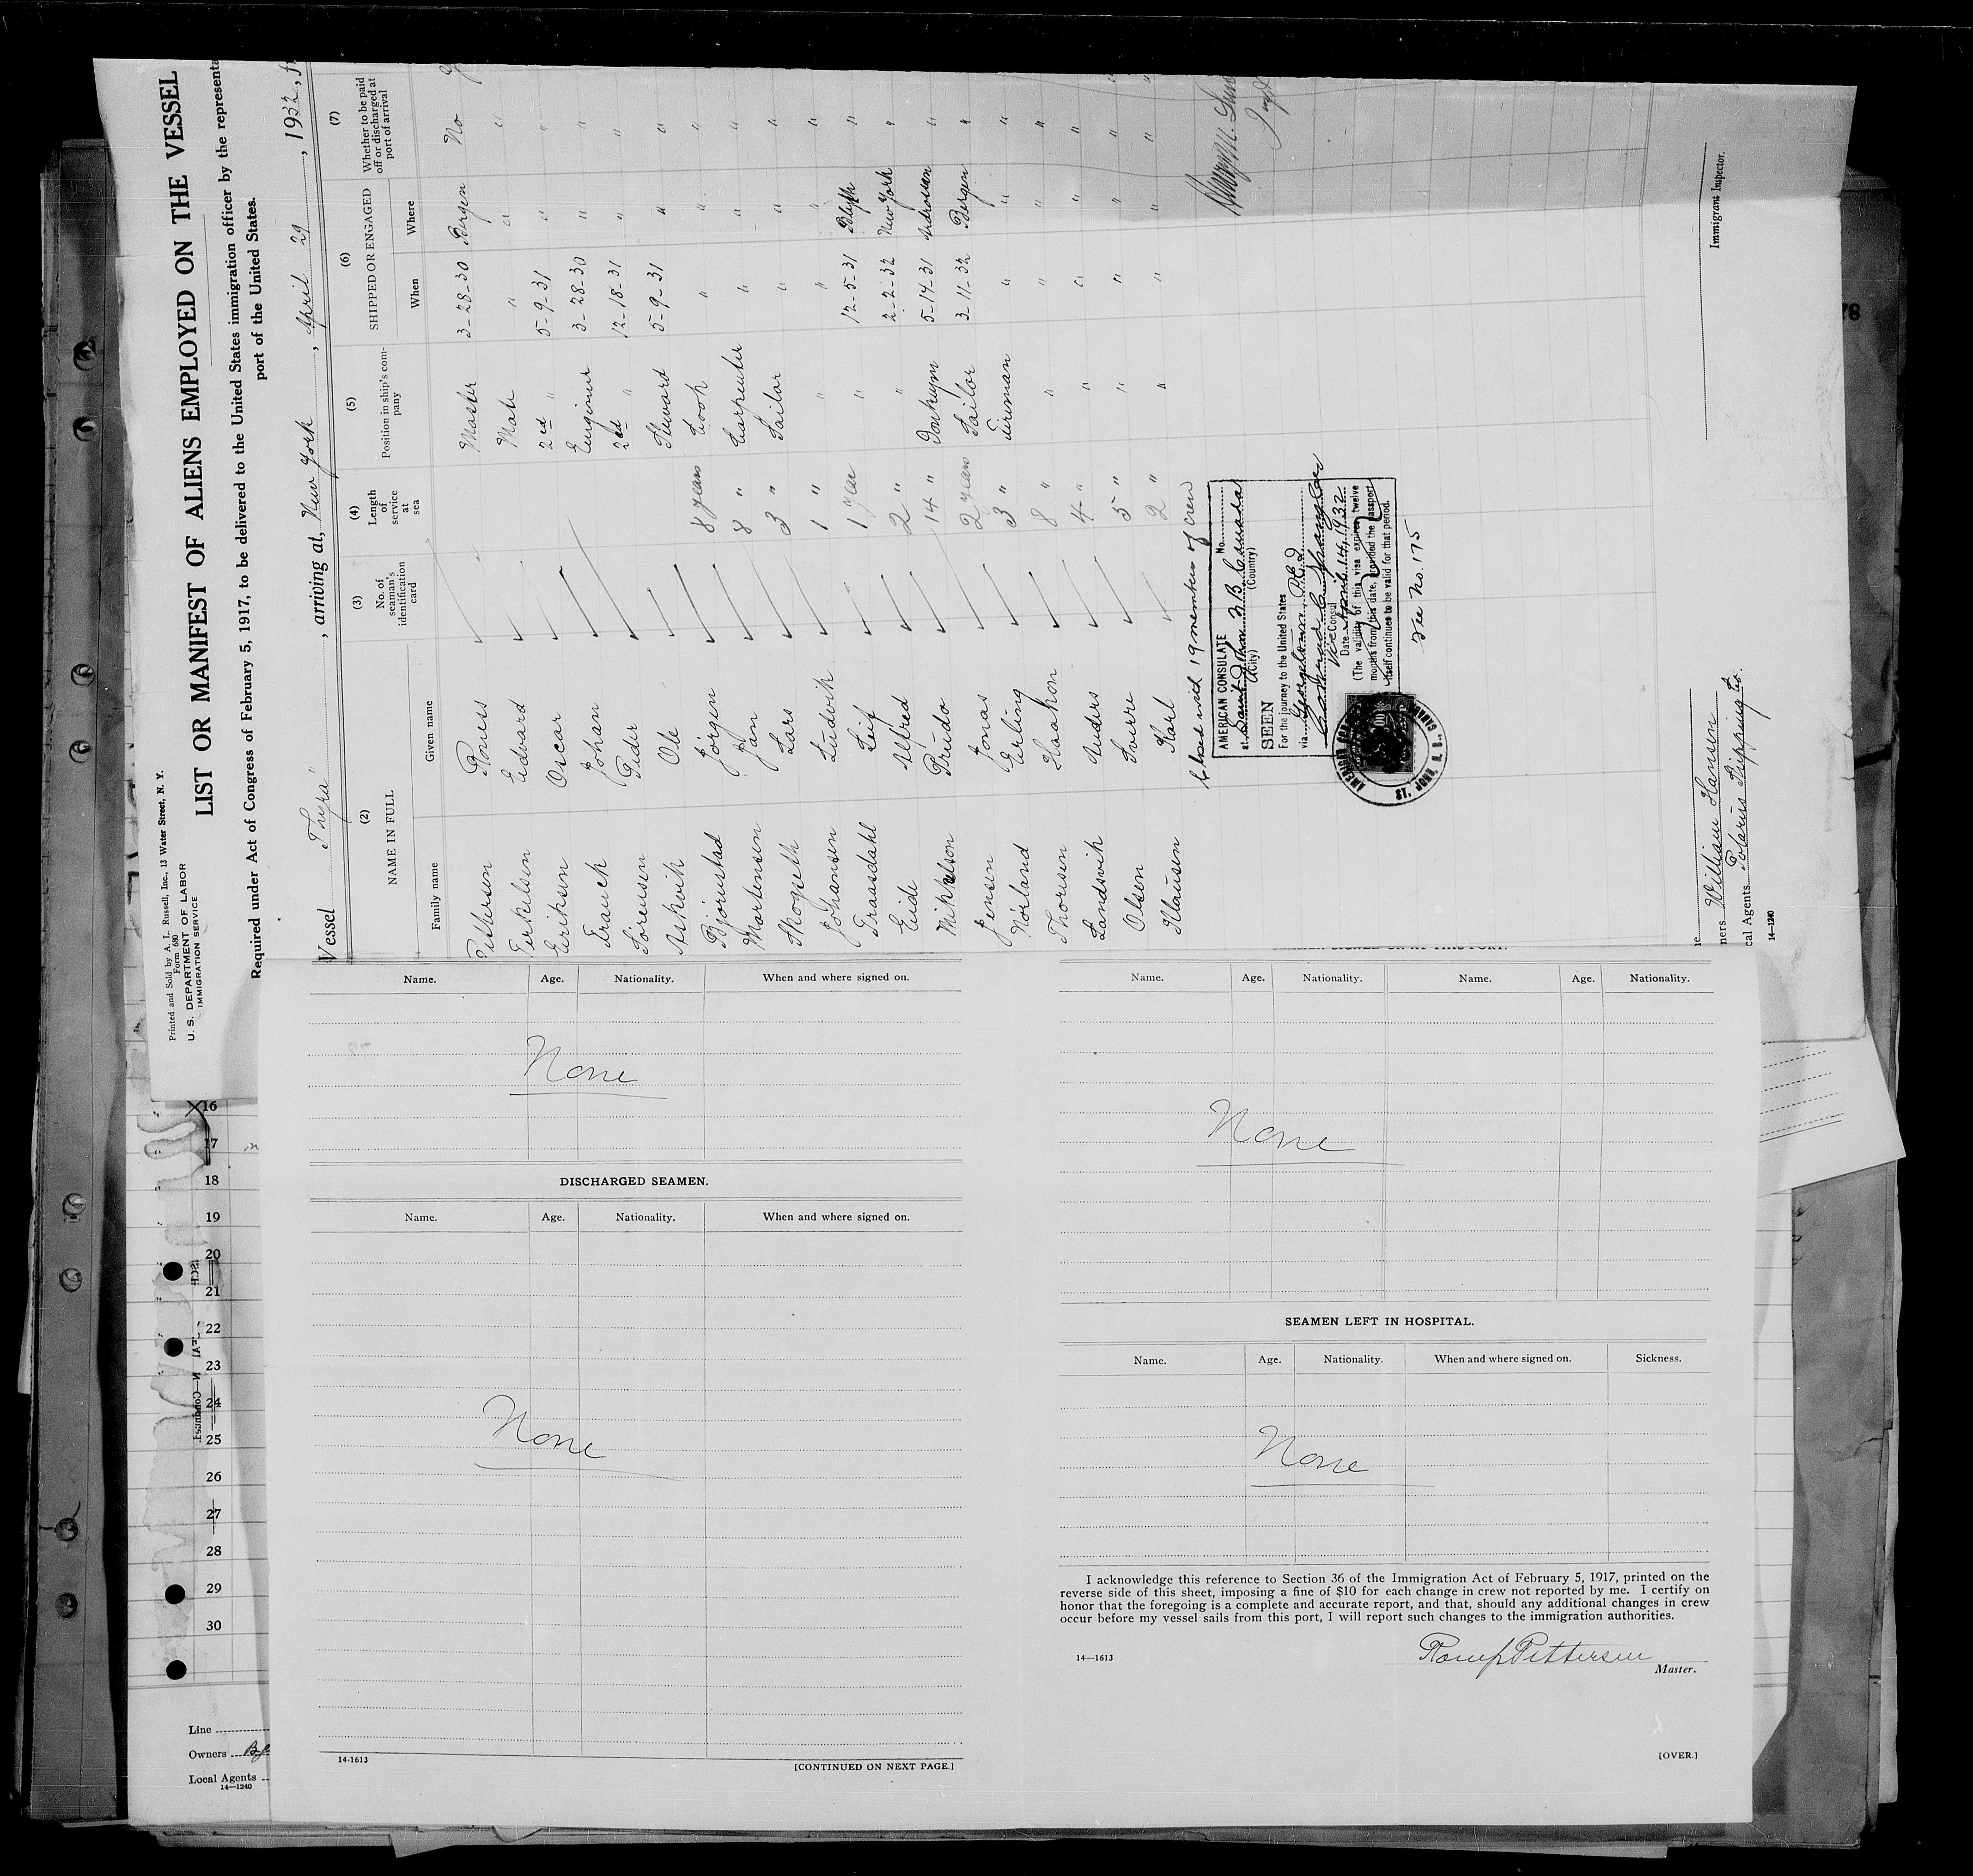 Printed and Sold by A. L. Russell, Inc., 13 Water Street, N. Y.
Form 680
U. S. DEPARTMENT OF LABOR
IMMIGRATION SERVICE
LIST OR MANIFEST OF ALIENS EMPLOYED ON THE VESSEL
Required under Act of Congress of February 5, 1917, to be delivered to the United States immigration officer by the representa
port of the United States.
Vessel "Thyra", arriving at, New York, April 29, 1932, f
(2) (3) (4) (5) (6) (7)
NAME IN FULL
Family name Given name
No. of seaman's identification card
Length of service at sea
Position in ship's company
SHIPPED OR ENGAGED
When Where
Whether to be paid off or discharged at port of arrival
Pettersen Master 3-28-30 Bergen No
Terkelsen Edvard Mate " " "
Eriksen Oscar 2ed " 5-9-31 " "
Franck Johan Engineer 3-28-30 " "
Sorensen Peder 2ed " 12-18-31 " "
Askvik Ole Steward 5-9-31 " "
Bjornstad Jörgen 8 years Cook " " "
Martensen Jan 8 " Carpenter " " "
Skogseth Lars 3 " Sailor " " "
Johansen Ludvik 1 " " " " "
Fraasdahl Leif 1 year " 12-5-31 Blyth "
Eide Alfred 2 " " 2-2-32 New York "
Mikkelson Prudo 14 " Donkeym 5-14-31 "
Jensen Jonas 2 years Sailor 3-11-32 Bergen "
Norland Erling 3 " Fireman " " "
Thorisen Haakon 8 " " " " "
Landsvik Anders 4 " " " " "
Olsen Sverre 5 " " " " "
Klausen Karl 2 " " " " "
Closed with 19 members of crew
AMERICAN CONSULATE No.
at Saint John N B Canada
(City) (Country)
SEEN
For the journey to the United States
via Georgetown, P.E.I.
Vice Consul
Date April 14, 1932
(The validity of this visa expires twelve
months from this date, provided the passport
itself continues to be valid for that period.
Fee No. 175
AMERICAN
ST. JOHN, N. B., CANADA
Immigrant Inspector.
ners William Hansen
cal Agents Polarus Shipping Co.
14-1240
Name. Age. Nationality. When and where signed on.
None
DISCHARGED SEAMEN.
Name. Age. Nationality. When and where signed on.
None
14-1613
[CONTINUED ON NEXT PAGE.]
Name. Age. Nationality. Name. Age. Nationality.
None
SEAMEN LEFT IN HOSPITAL.
Name. Age. Nationality. When and where signed on. Sickness.
None
I acknowledge this reference to Section 36 of the Immigration Act of February 5, 1917, printed on the
reverse side of this sheet, imposing a fine of $10 for each change in crew not reported by me. I certify on
honor that the foregoing is a complete and accurate report, and that, should any additional changes in crew
occur before my vessel sails from this port, I will report such changes to the immigration authorities.
14—1613
Pettersen
Master.
[OVER.]
16
17
18
19
20
21
22
23
24
25
26
27
28
29
30
Line
Owners
Local Agents
14—1240
78